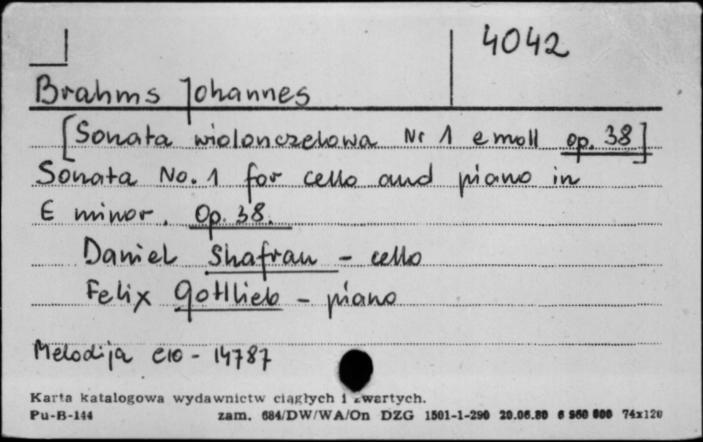 4042
Brahms Johannes
[Sonata wiolonczelowa Nr 1 e moll op. 38]
Sonata No. 1 for cello and piano in
E minor. Op. 38.
Daniel Shafran - cello
Felix Gottlieb - piano
Melodija C10 - 14787
Karta katalogowa wydawnictw ciągłych i zwartych.
Pu-B-144 zam. 684/DW/WA/On DZG 1501-1-290 20.06.80 6 950 000 74x120